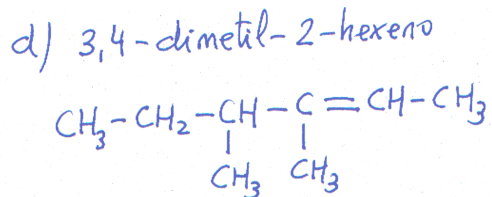 d) 3,4-dimetil-2-hexeno
CH₃-CH₂-CH-C=CH-CH₃
CH₃ CH₃